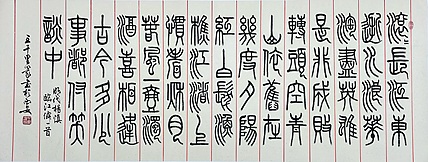 滾〻長江東
逝水浪花
淘盡英雄
是非成敗
轉頭空青
山依舊在
幾度夕陽
紅白髮漁
樵江渚上
慣看秋月
春風一壺濁
酒喜相逢
古今多少
事都付笑
談中
明代楊慎
臨江仙一首